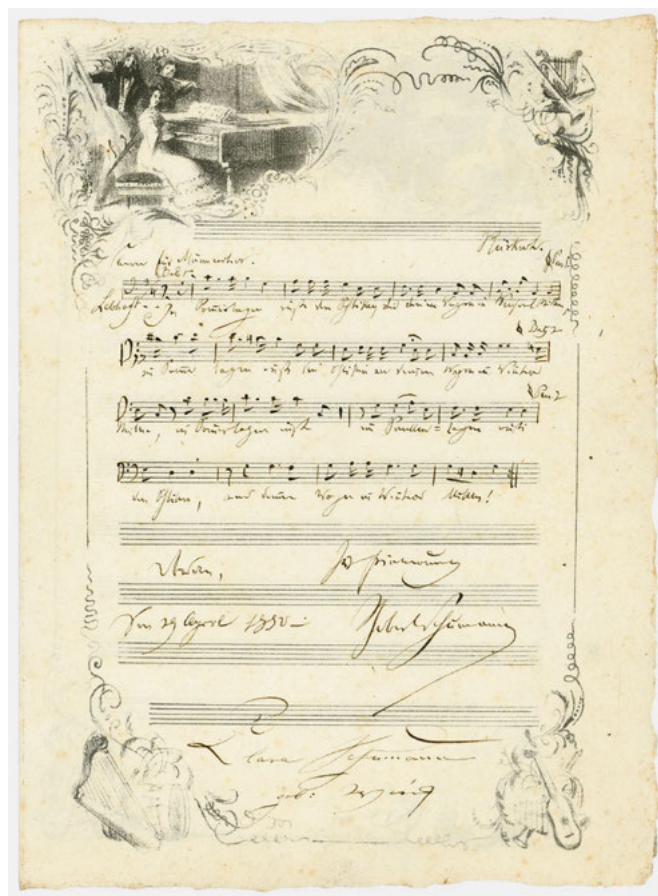 für Männerchor.
Rückert.
Lebhaft. In Sommertagen rüste den Schlitten und deinen Wagen in Mitten,
in Sommertagen rüste den Schlitten und deinen Wagen in Winters
Mitten, in Sommertagen rüste in Sommertagen rüste
den Schlitten, und deinen Wagen in Winters Mitten!
Dresden, Zur Erinnerung
Den 29 April 1850 Robert Schumann
Clara Schumann
geb: Wieck